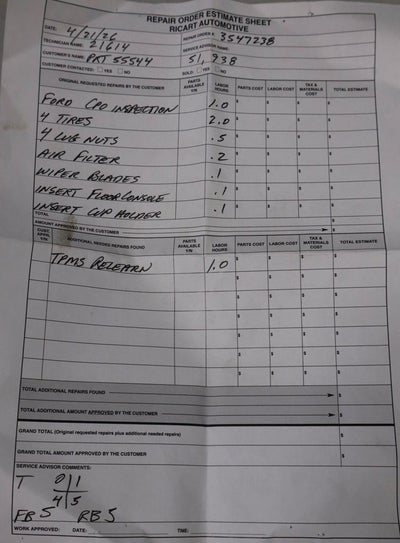 REPAIR ORDER ESTIMATE SHEET
RICART AUTOMOTIVE
DATE: 4/21/26 REPAIR ORDER # 3547238
TECHNICIAN NAME: 21614 SERVICE ADVISOR NAME:
CUSTOMER'S NAME: PKT 55544 51,938
CUSTOMER CONTACTED: YES NO SOLD: YES NO
ORIGINAL REQUESTED REPAIRS BY THE CUSTOMER PARTS AVAILABLE Y/N LABOR HOURS PARTS COST LABOR COST TAX & MATERIALS COST TOTAL ESTIMATE
FORD CPO INSPECTION 1.0 $ $ $ $
4 TIRES 2.0 $ $ $ $
4 LUG NUTS .5 $ $ $ $
AIR FILTER .2 $ $ $ $
WIPER BLADES .1 $ $ $ $
INSERT FLOOR CONSOLE .1 $ $ $ $
INSERT CUP HOLDER .1 $ $ $ $
TOTAL
AMOUNT APPROVED BY THE CUSTOMER $
CUST. APPV. Y/N ADDITIONAL NEEDED REPAIRS FOUND PARTS AVAILABLE Y/N LABOR HOURS PARTS COST LABOR COST TAX & MATERIALS COST TOTAL ESTIMATE
TPMS RELEARN 1.0 $ $ $ $
$ $ $ $
$ $ $ $
$ $ $ $
$ $ $ $
$ $ $ $
TOTAL ADDITIONAL REPAIRS FOUND $
TOTAL ADDITIONAL AMOUNT APPROVED BY THE CUSTOMER $
GRAND TOTAL (Original requested repairs plus additional needed repairs) $
GRAND TOTAL AMOUNT APPROVED BY THE CUSTOMER $
SERVICE ADVISOR COMMENTS:
T 0 1
4 5
FB 5 RB 5
WORK APPROVED: DATE: TIME: